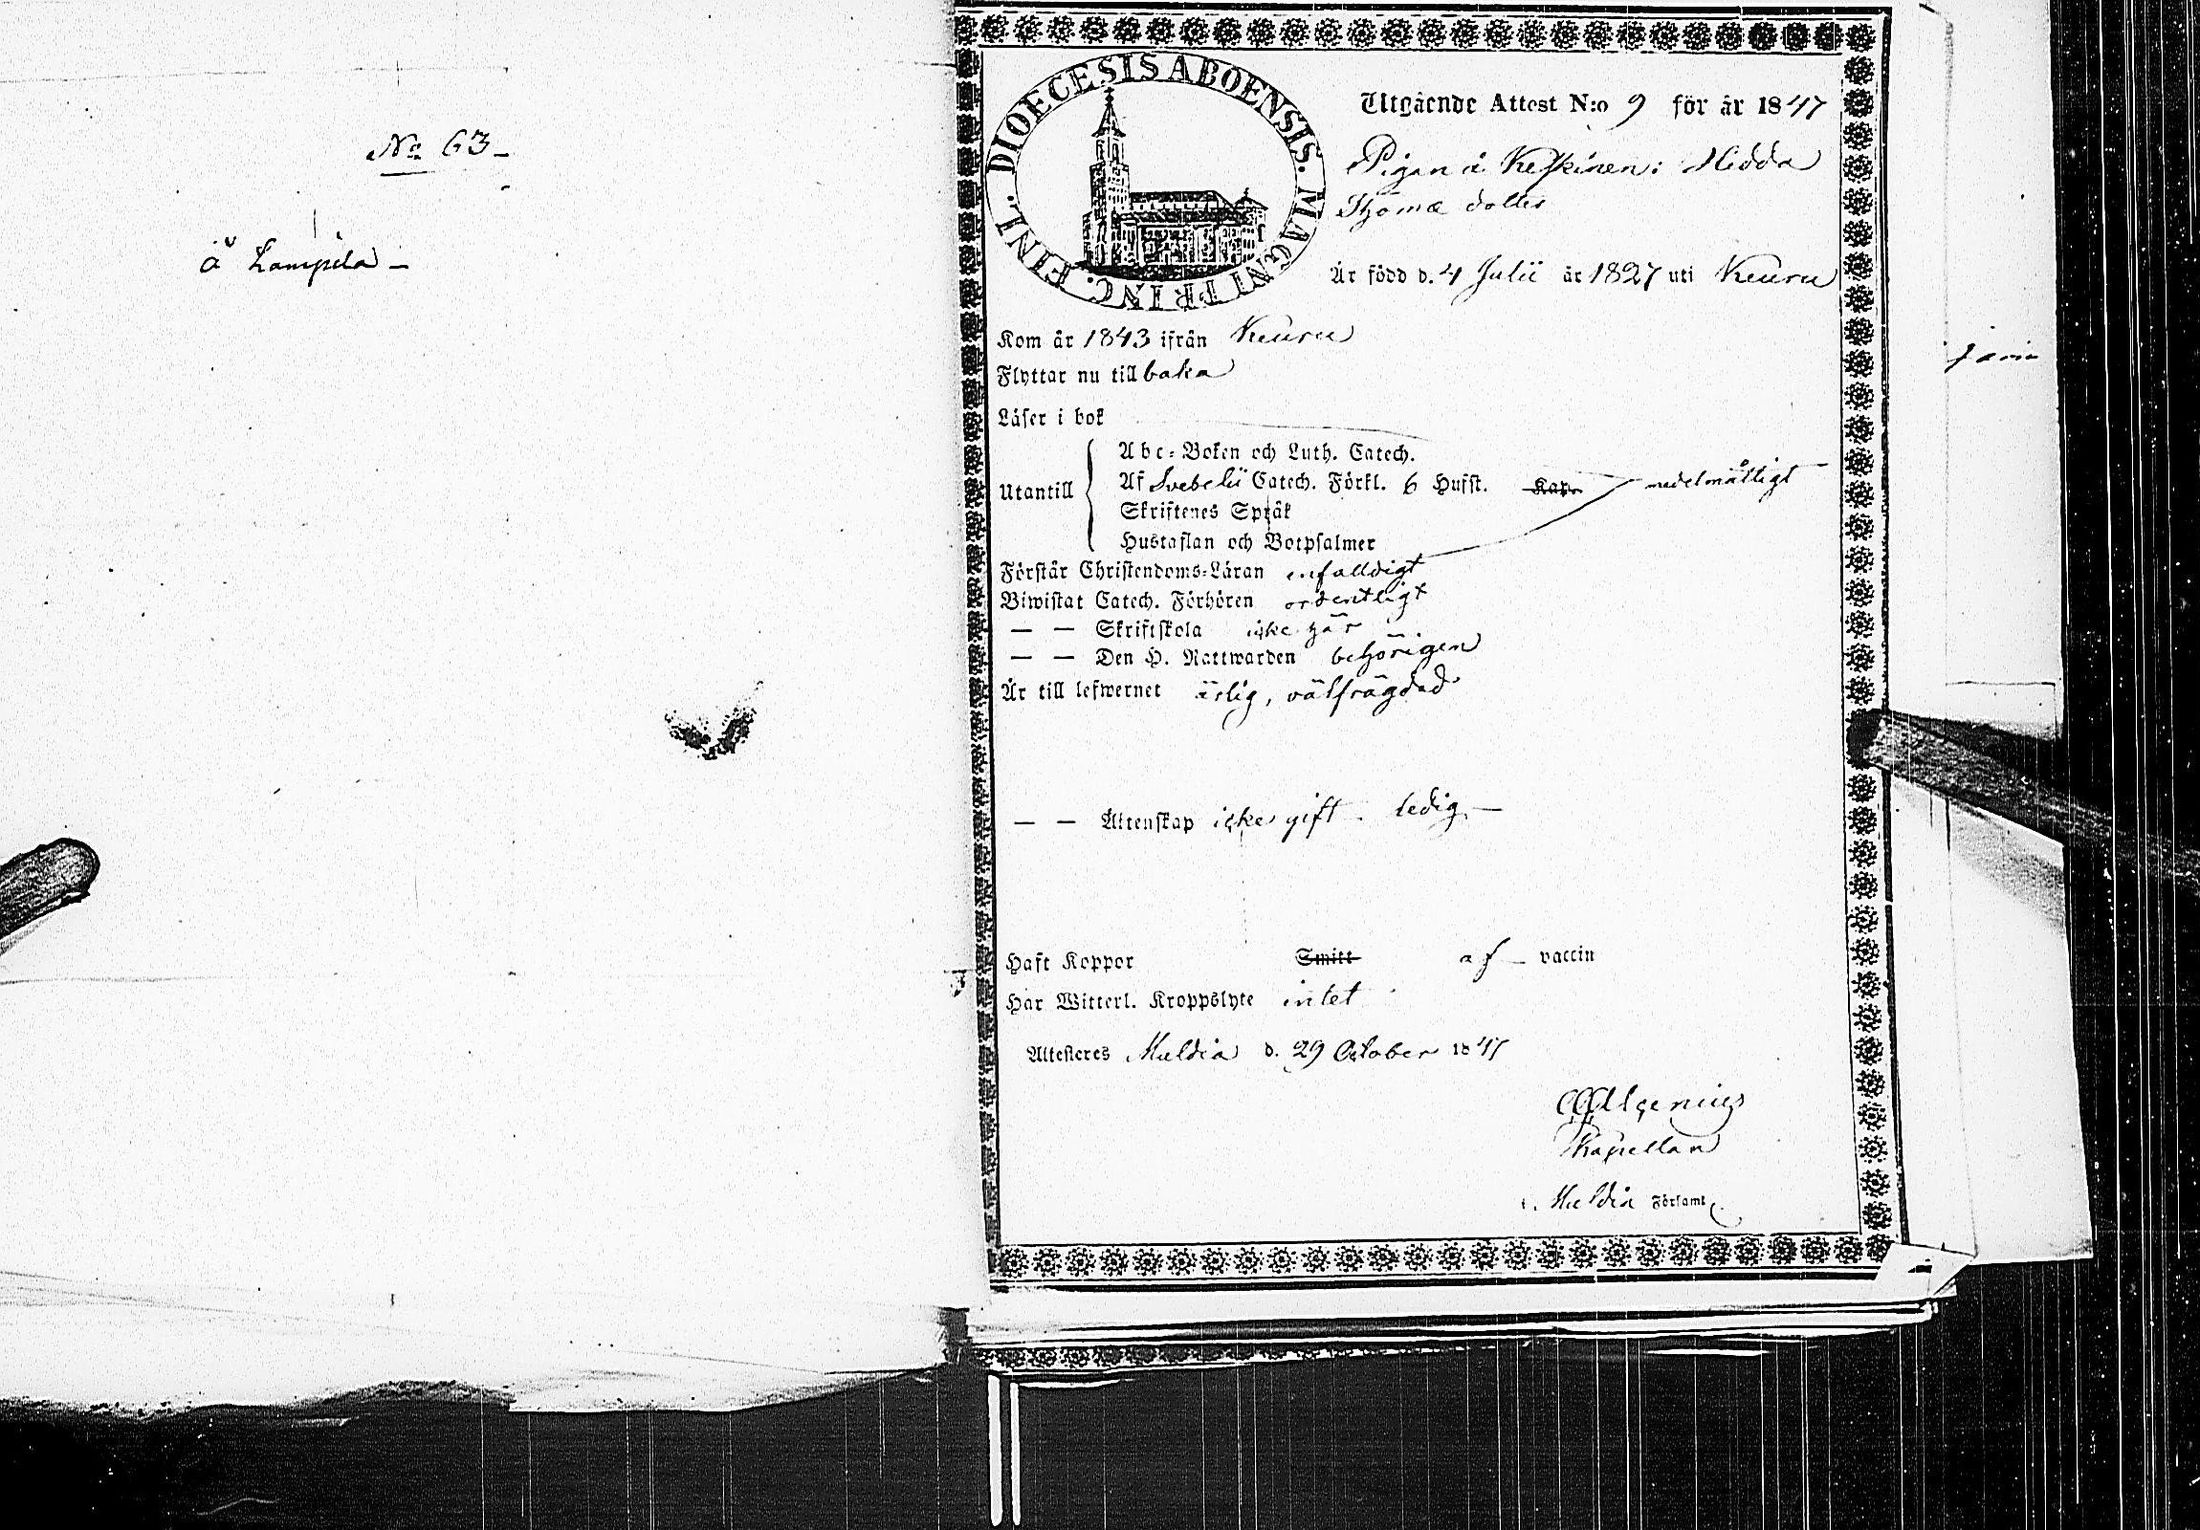 No 63
å Lampila
DIOECESIS ABOENSIS. MAGNI PRINC. FINL.
Utgående Attest N:o 9 för år 1847
Pigan å Keskinen: Hedda
Thomæ dotter
Är född d. 4 Julii år 1827 uti Keuru
Kom år 1843 ifrån Keuru
Flyttar nu tillbaka
Läser i bok
Abc-Boken och Luth. Catech.
Utantill Af Svebelii Catech. Förkl. 6 Hufst. Kap. medelmåttigt
Skriftenes Språk
Hustaflan och Botpsalmer
Förstår Christendoms-Läran enfaldigt
Biwistat Catech. Förhören ordentligt
— — Skriftskola icke här
— — Den H. Nattwarden behörigen
Är till lefwernet ärlig, välfrägdad
— — Äktenskap icke gift. ledig —
Haft Koppor Smitt af vaccin
Har Witterl. Kroppslyte intet
Attesteras Muldia d. 29 October 1847
Kapellan
i. Muldia Församl.